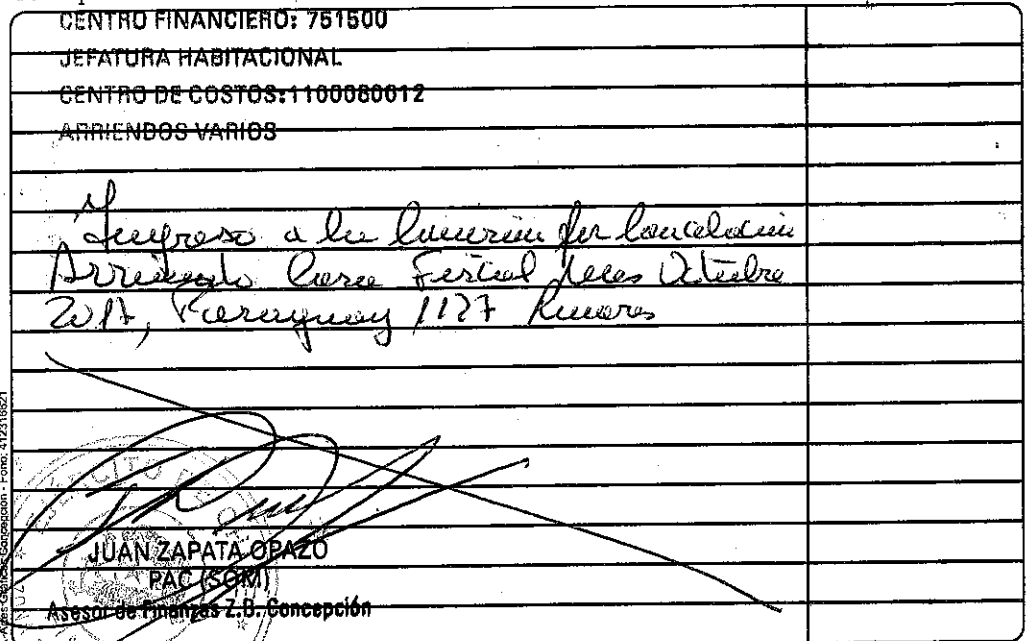 CENTRO FINANCIERO: 751500
JEFATURA HABITACIONAL
CENTRO DE COSTOS: 1100080012
ARRIENDOS VARIOS
Ingreso a la por Cancelación
Arriendo Casa Fiscal Mes Octubre
2017, Paraguay 1127 Linares
JUAN ZAPATA OPAZO
PAC (SOM)
Asesor de Finanzas Z.B. Concepción
Artes Gráficas Concepción - Fono: 412318821